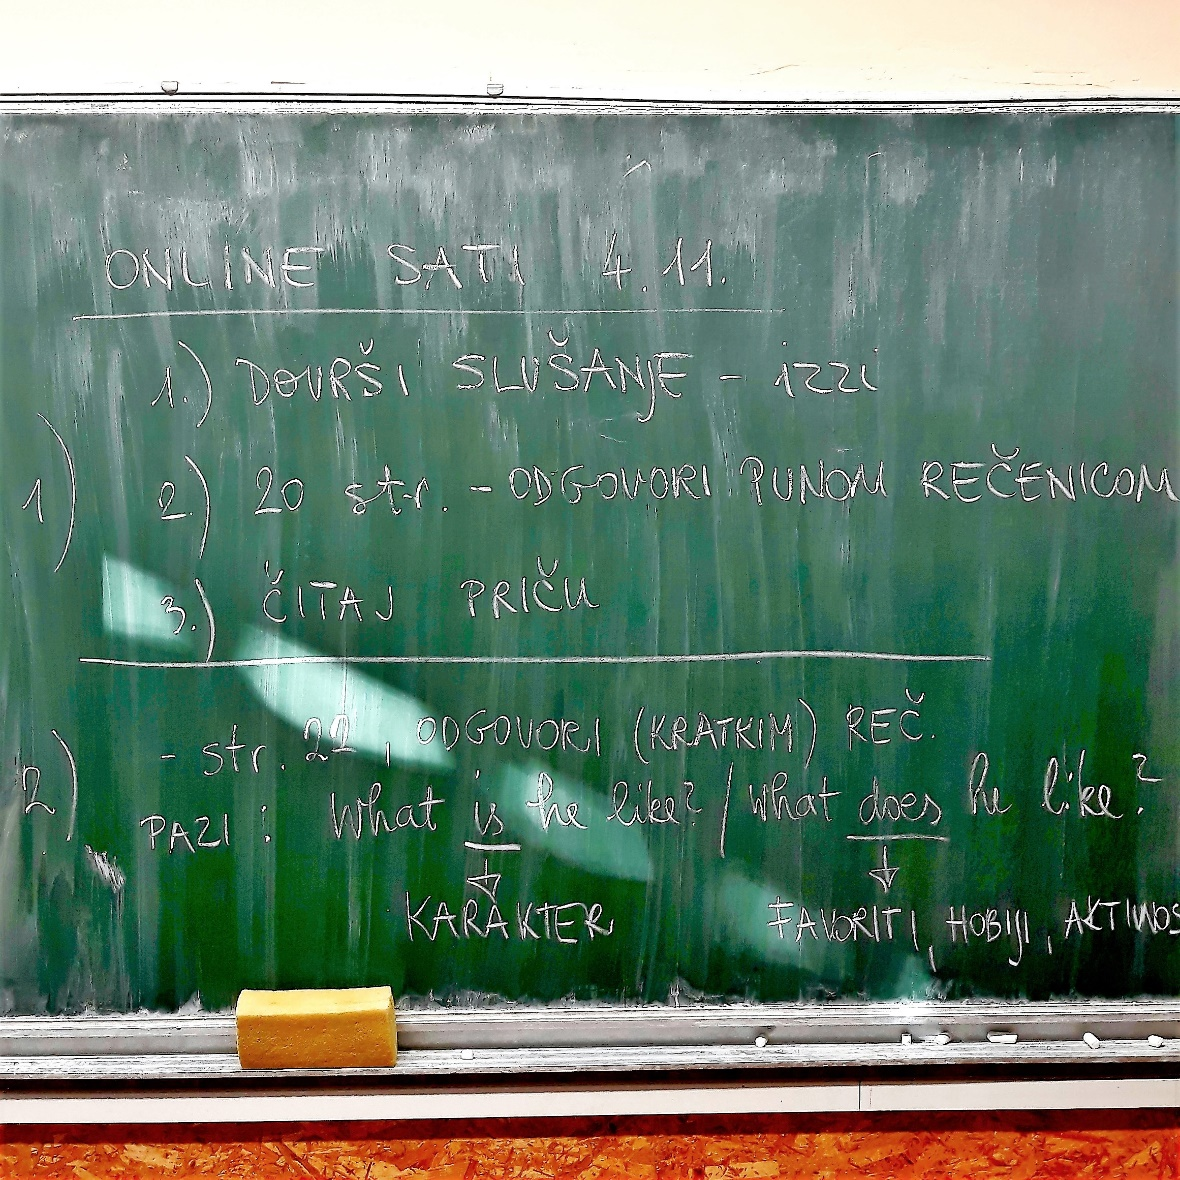 ONLINE SATI 4.11.
1.) DOVRŠI SLUŠANJE - izzi
1) 2.) 20 str. - ODGOVORI PUNOM REČENICOM
3.) ČITAJ PRIČU
- str. 22, ODGOVORI (KRATKIM) REČ.
2) PAZI: What is he like? / What does he like?
KARAKTER FAVORITI, HOBIJI, AKTIVNOS